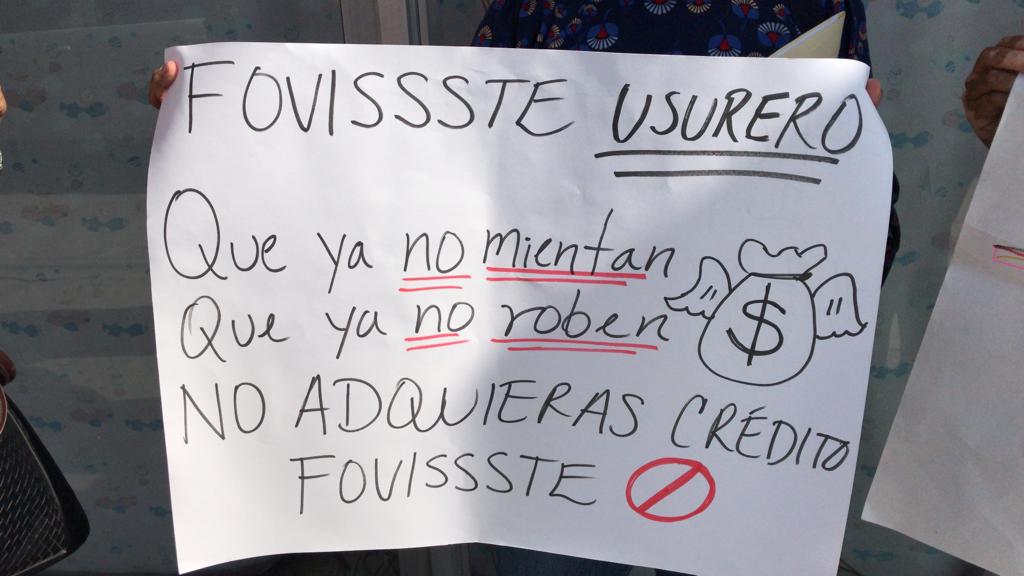 FOVISSSTE USURERO
Que ya no mientan
Que ya no roben
$
NO ADQUIERAS CRÉDITO
FOVISSSTE